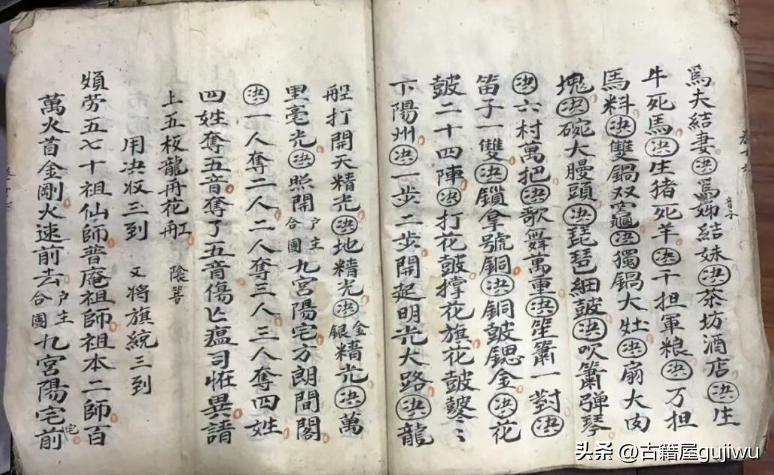 爲夫結妻㊋爲姊結妹㊋茶坊酒店㊋生
牛死馬㊋生猪死羊㊋千担軍粮㊋万担
馬料㊋雙鍋双竈㊋獨鍋大灶㊋扇大肉
塊㊋碗大饅頭㊋琵琶細鼓㊋吹簫彈琴
㊋六村萬把㊋歌舞萬重㊋笙簫一對㊋
笛子一雙㊋鎖拿號銅㊋銅鼓鍶金㊋花
鼓二十四陣㊋打花鼓撑花旗花鼓鼕〻
卞陽州㊋一步二步開起明光大路㊋龍
船打開天精光㊋地精光㊋金銀精光㊋萬
里毫光㊋照開户主合團九宮陽宅万朗間閣
㊋一人奪二人二人奪三人三人奪四姓
四姓奪五音奪了五音傷亡瘟司恠異請
上五板龍舟花舡 陰筶
用决収三到 又將旗統三到
煩劳五七十祖仙師普庵祖師祖本二師百
萬火首金剛火速前去户主合團九宮陽宅前
宅
头条 @古籍屋gujiwu